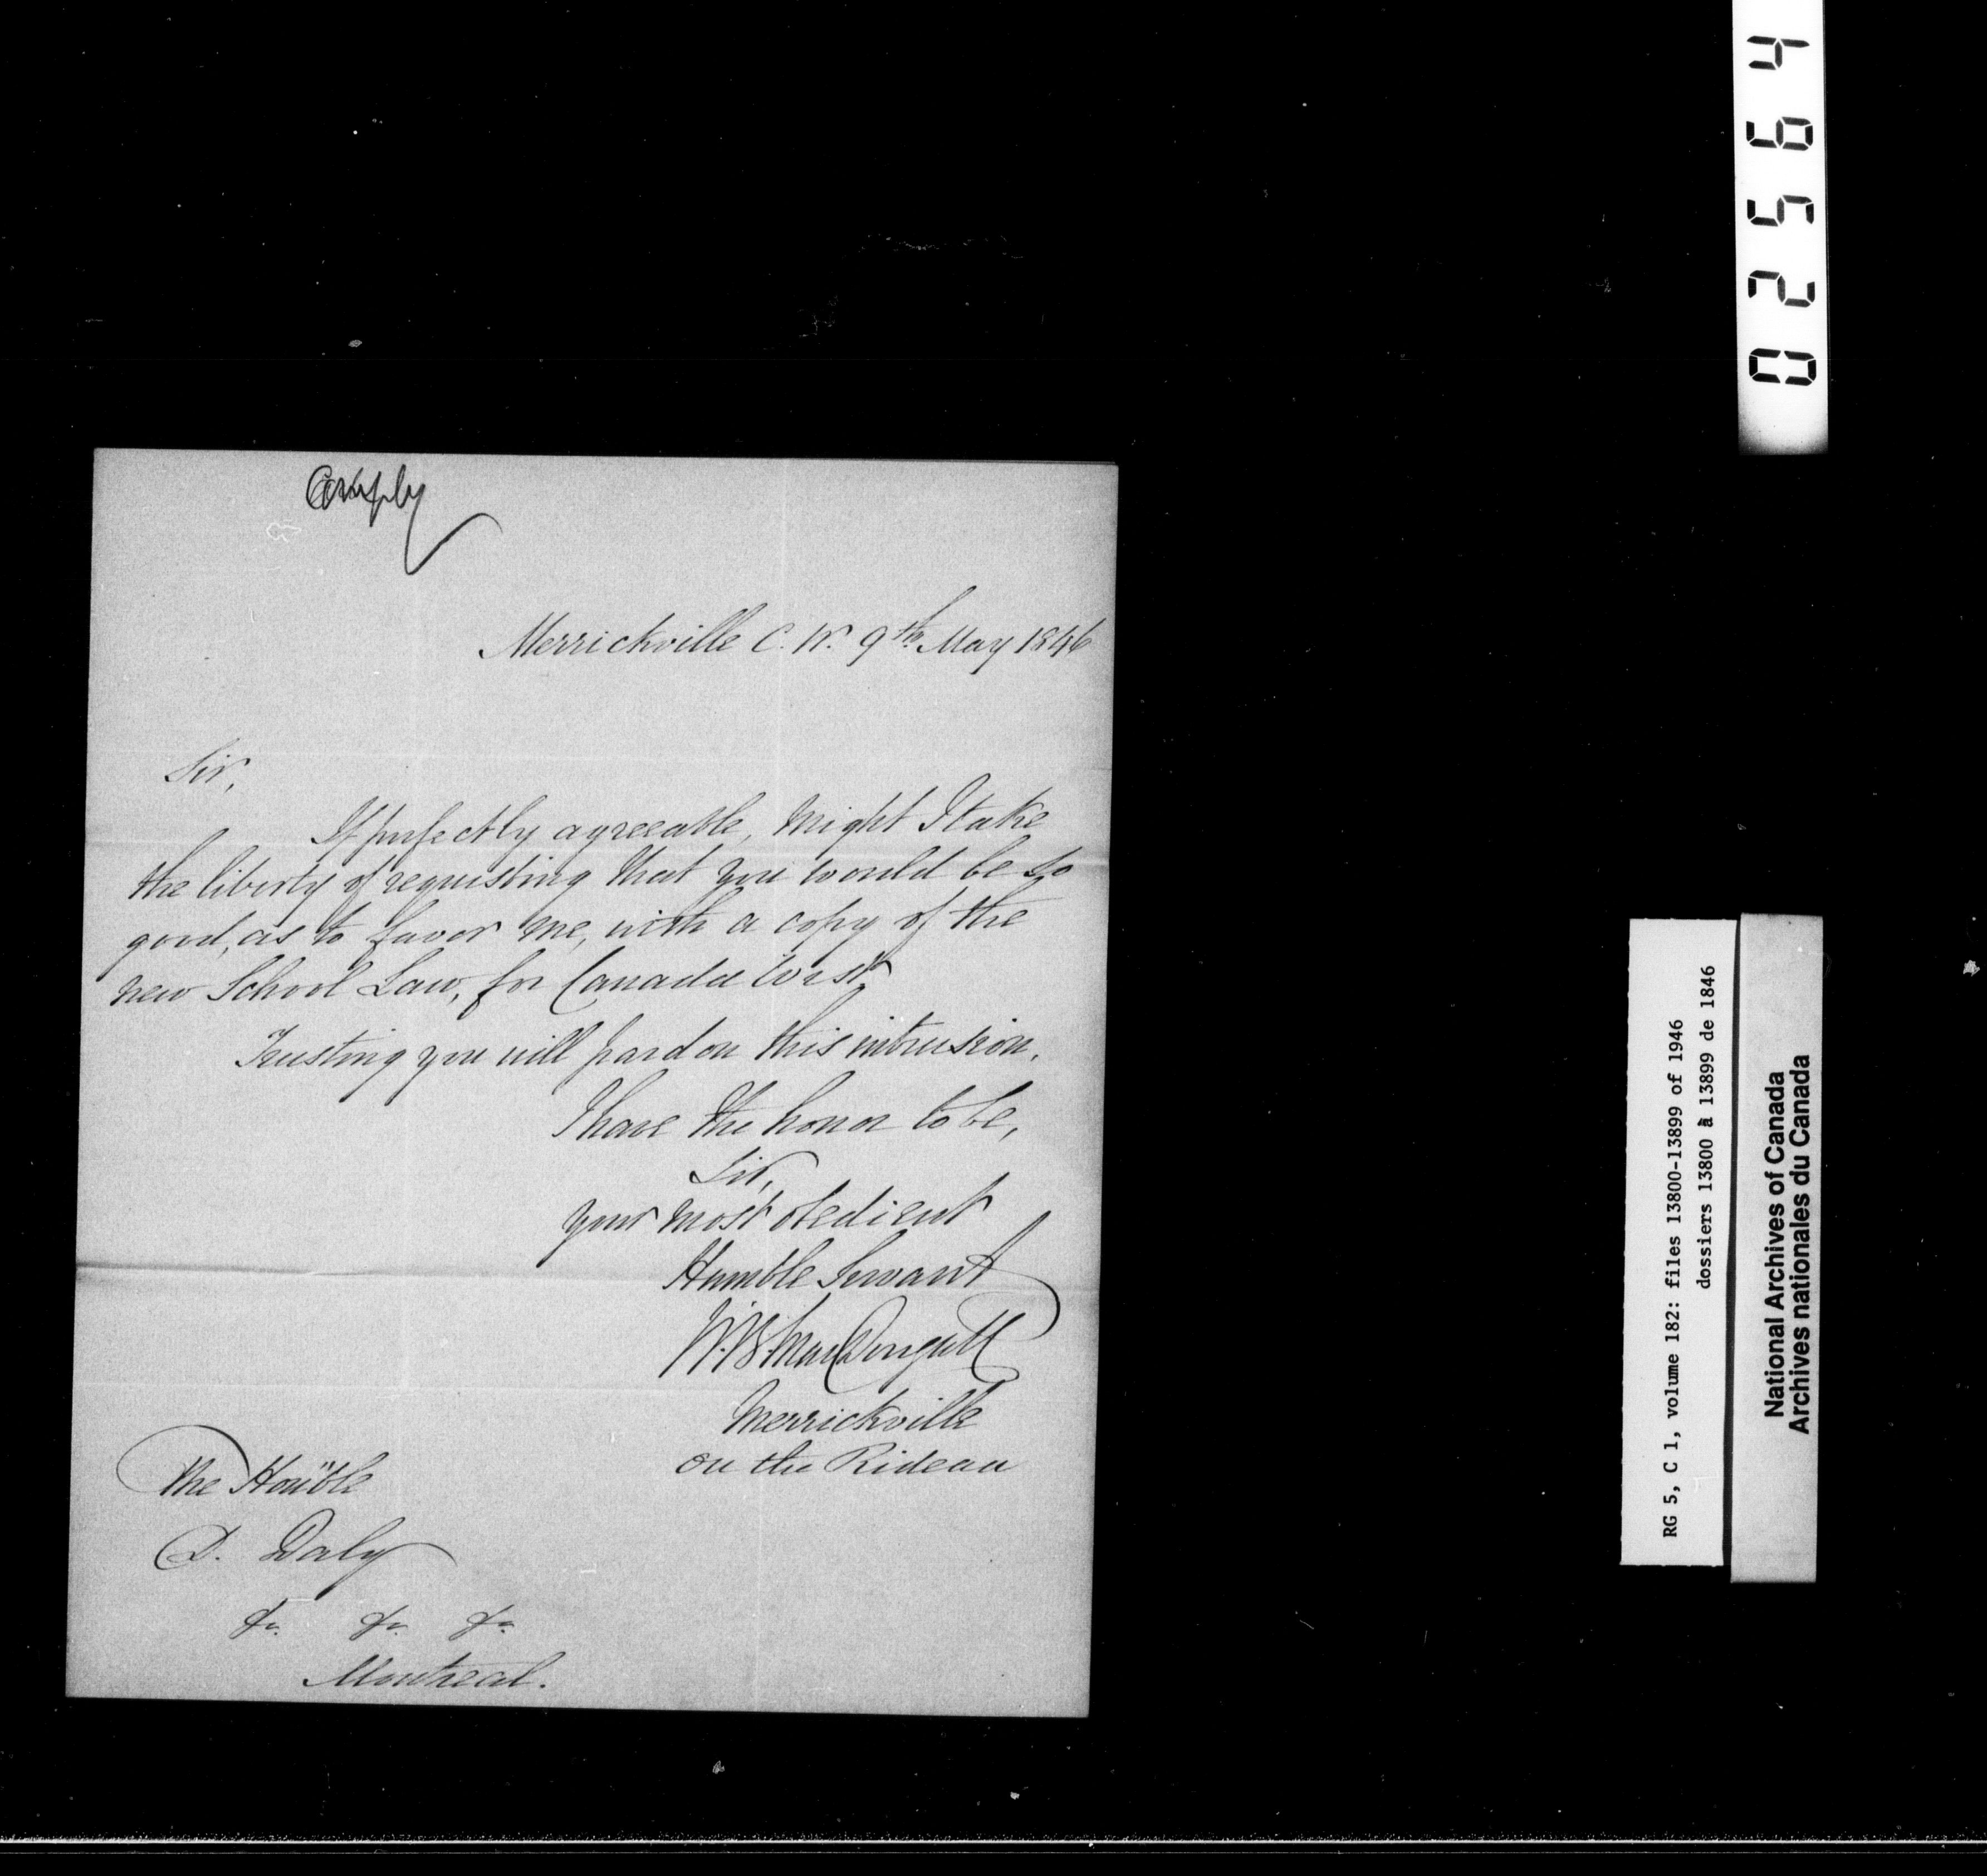 Comply
Merrickville C. W. 9th May 1846
Sir,
If perfectly agreeable, might I take
the liberty of requesting that you would be so
good, as to favor me, with a copy of the
new School Law, for Canada West
Trusting you will pardon this intrusion,
I have the honor to be,
Sir,
your most obedient
Humble Servant
W.B. MacDougall
Merrickville
on the Rideau
The Hon'ble
D. Daly
&c. &c. &c.
Montreal.
02564
RG 5, C 1, volume 182: files 13800-13899 of 1946
dossiers 13800 à 13899 de 1846
National Archives of Canada
Archives nationales du Canada